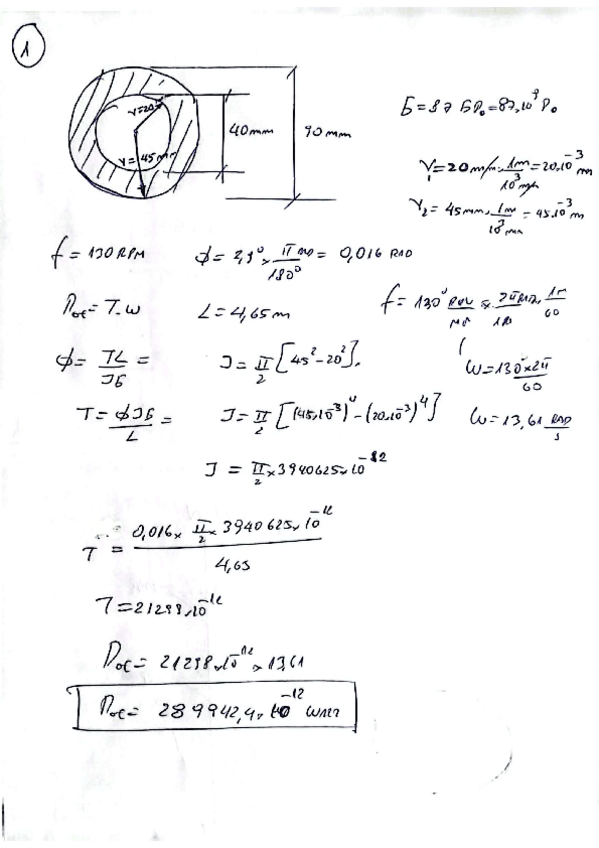 1
r=20
r = 45 mm
40mm
90 mm
G = 87 GPa = 87.10⁹ Pa
r₁ = 20 mm . 1m / 10³ mm = 20.10⁻³ m
r₂ = 45 mm . 1m / 10³ mm = 45.10⁻³ m
f = 130 RPM
ϕ = . π RAD / 180° = 0,016 RAD
Pot = T.W
L = 4,65 m
f = 130 Rev / × 2π RAD . / 60
ϕ = TL / JG =
J = π/2 [45² - 20²].
W = 130 × 2π / 60
T = ϕJG / L =
J = π/2 [(45.10⁻³)⁴ - (20.10⁻³)⁴]
W = 13,61 RAD / s
J = π/2 × 3940625 × 10⁻¹²
T = 0,016 × π/2 × 3940625 × 10⁻¹² / 4,65
T = 21298 × 10⁻¹²
Pot = 21298 × 10⁻¹² × 13,61
Pot = 289942,4 × 10⁻¹² WATT